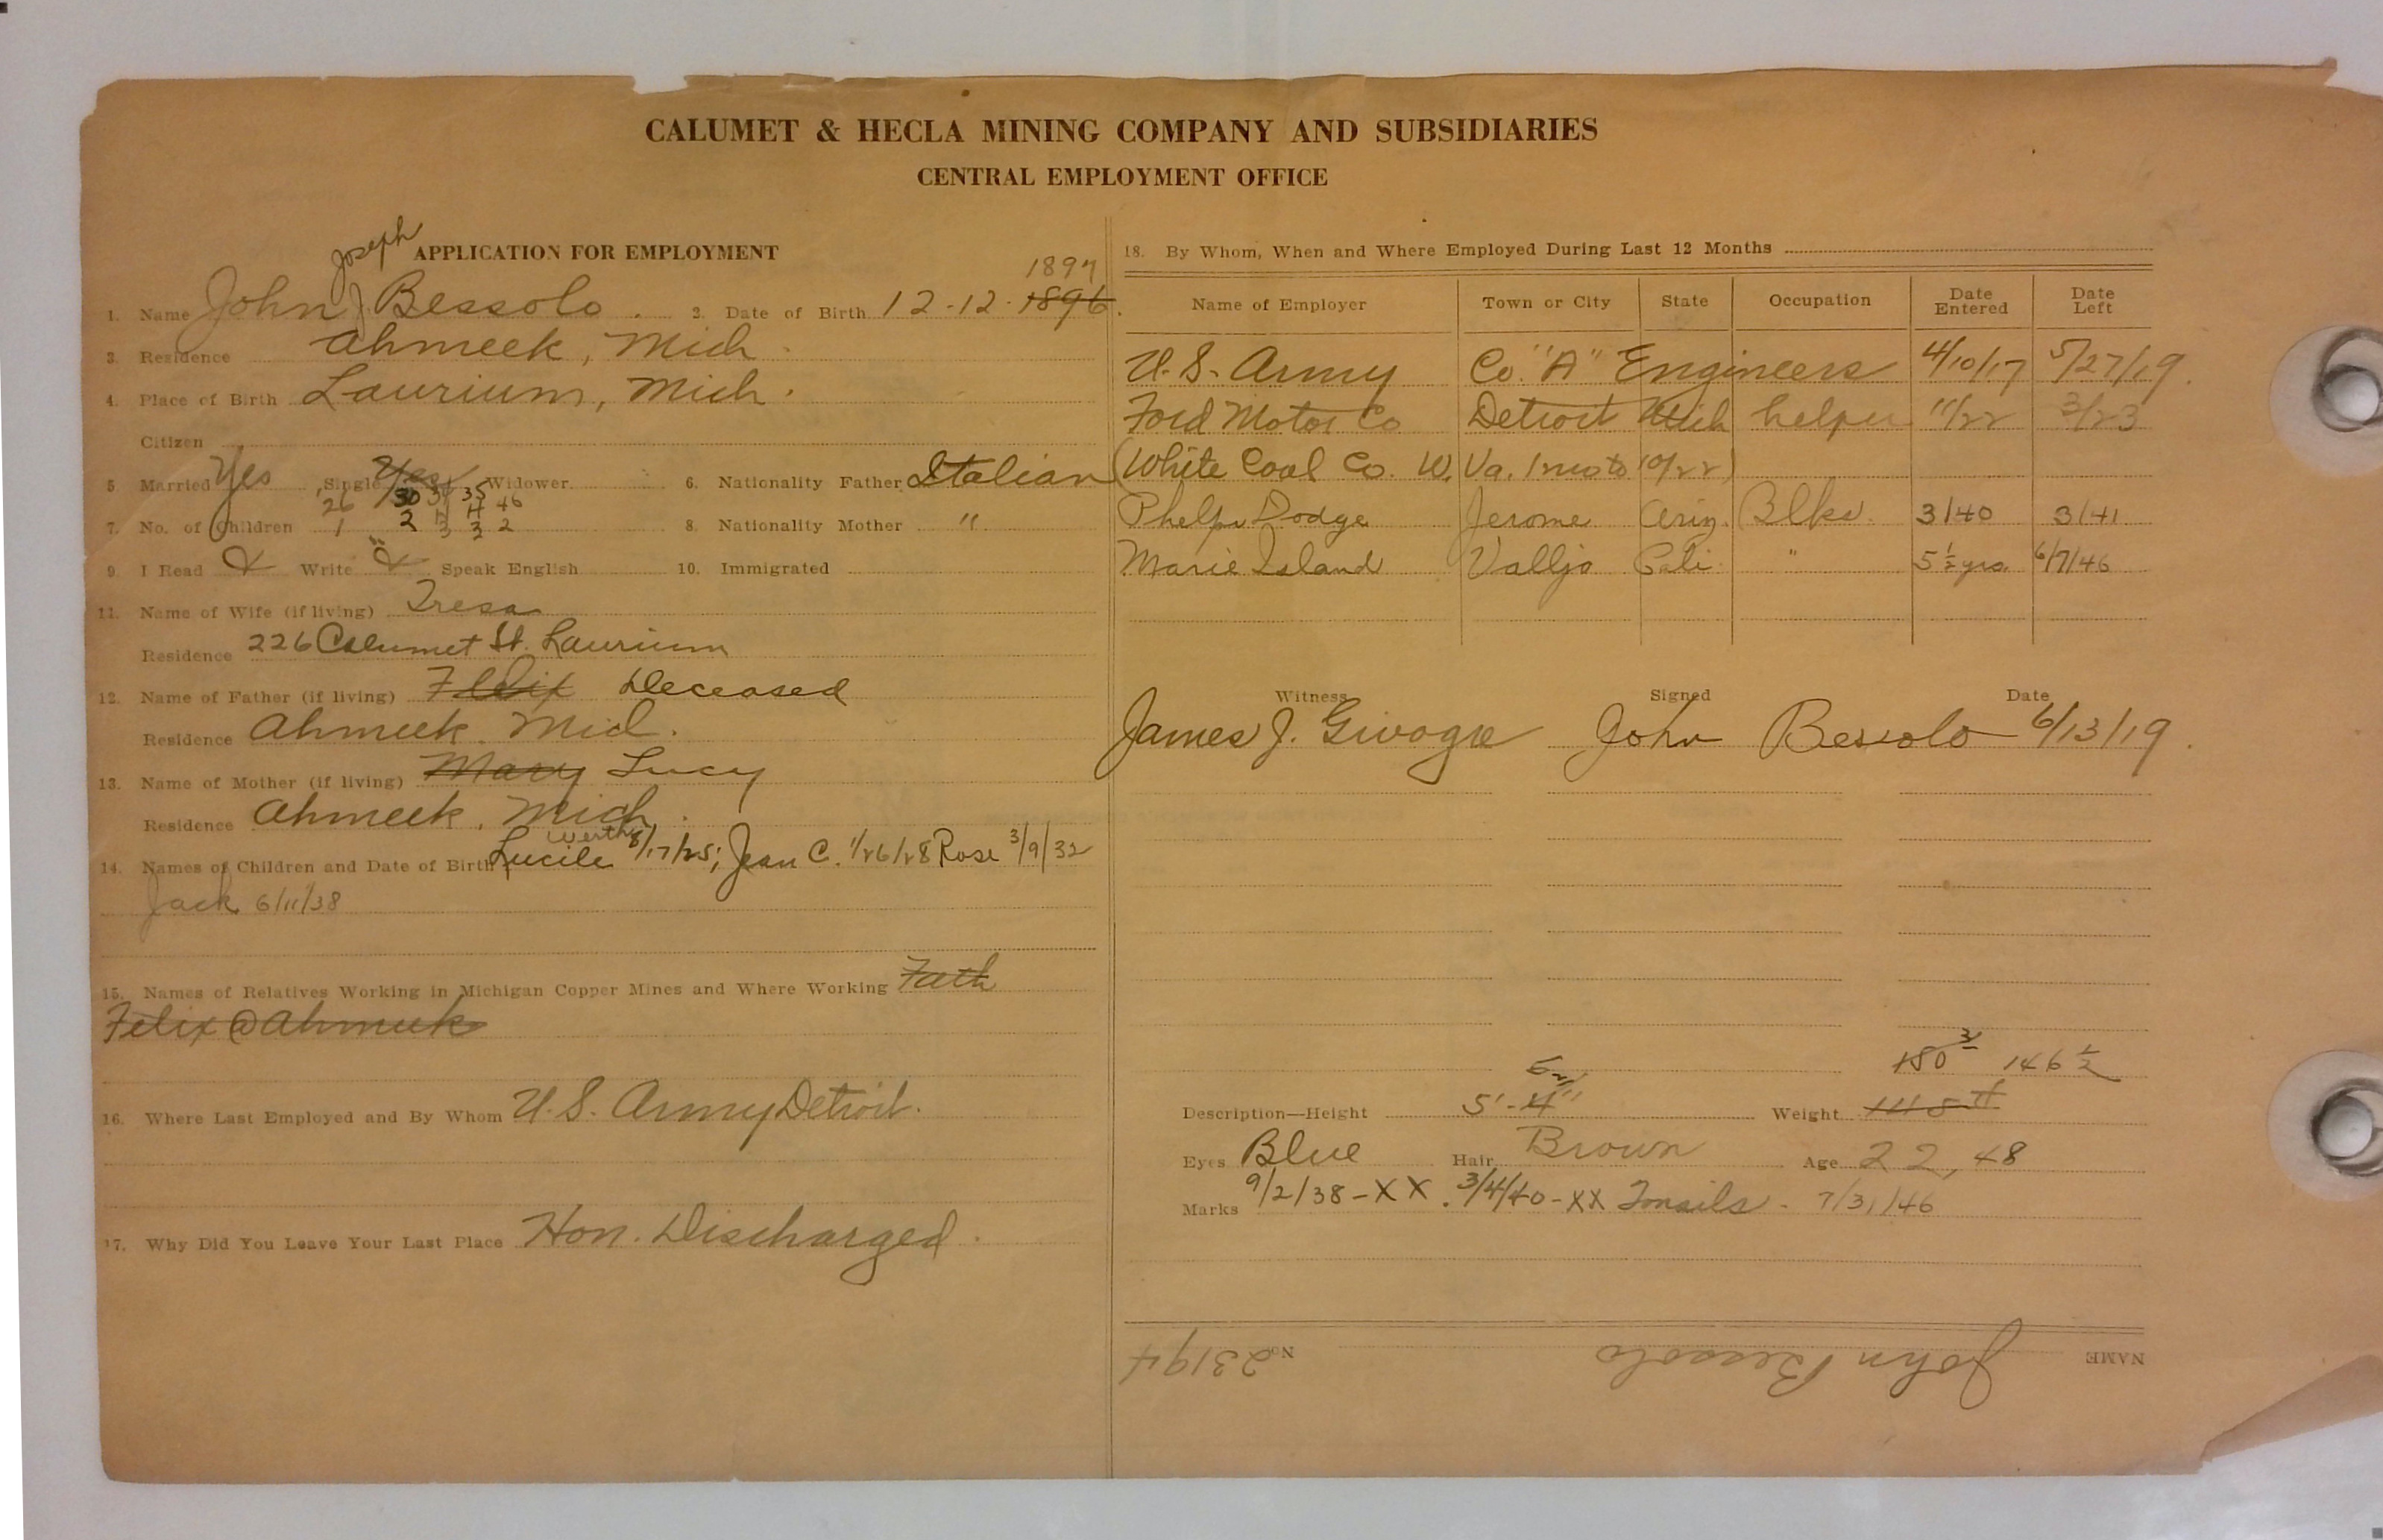 CALUMET & HECLA MINING COMPANY AND SUBSIDIARIES
CENTRAL EMPLOYMENT OFFICE
APPLICATION FOR EMPLOYMENT
Joseph
1897
1. Name John J Bessolo. 2. Date of Birth 12-12-1896.
3. Residence Ahmeek, Mich.
4. Place of Birth Laurium, Mich.
Citizen
5 Married Yes Single Yes Widower 6. Nationality Father Italian
26 30 34 35 46
7. No. of Children 1 2 3 3 2 8. Nationality Mother "
9. I Read Write Speak English 10. Immigrated
11. Name of Wife (if living) Tresa
Residence 226 Calumet St. Laurium
12. Name of Father (if living) Felix Deceased
Residence Ahmeek, Mich.
13. Name of Mother (if living) Mary Lucy
Residence Ahmeek, Mich.
Werth
14. Names of Children and Date of Birth Lucile 8/17/25; Jean C. 1/26/28 Rose 3/9/32
Jack 6/11/38
15. Names of Relatives Working in Michigan Copper Mines and Where Working Fath
Felix @ Ahmeek
16. Where Last Employed and By Whom U.S. Army Detroit.
17. Why Did You Leave Your Last Place Hon. Discharged.
18. By Whom, When and Where Employed During Last 12 Months
Name of Employer Town or City State Occupation Date Entered Date Left
U.S. Army Co. "A" Engineers 4/10/17 5/27/19.
Ford Motor Co Detroit Mich helper 11/22 3/23
(White Coal Co. W. Va. 1 mo to 10/22)
Phelps Dodge Jerome Ariz. Blks. 3/40 3/41
Marie Island Valljo Cali " 5 1/2 yrs. 6/7/46
Witness Signed Date
James J. John Bessolo 6/13/19.
150 146 1/2
Description—Height 5'-4" Weight
Eyes Blue Hair Brown Age 22, 48
Marks 9/2/38-XX. 3/4/40-XX Tonsils - 7/31/46
NAME John Bessolo No. 23194